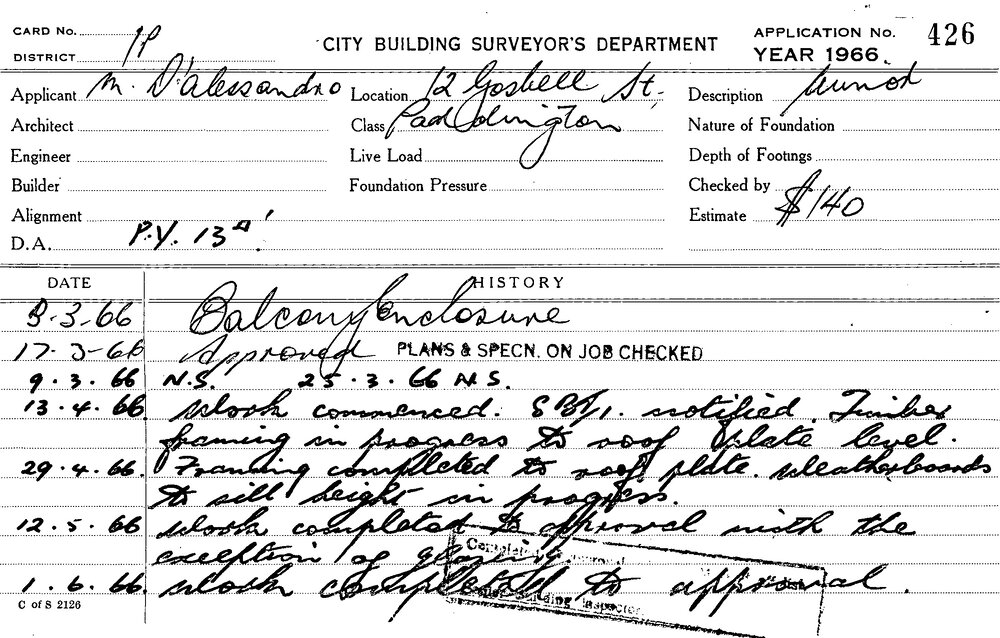 CARD No. 1P
CITY BUILDING SURVEYOR'S DEPARTMENT
APPLICATION No. 426
DISTRICT
YEAR 1966.
Applicant M. D'Alessandro Location 12 Gosbell St. Description Minor
Architect Class Paddington Nature of Foundation
Engineer Live Load Depth of Footings
Builder Foundation Pressure Checked by
Alignment Estimate $140
D.A. P.Y. 13
DATE HISTORY
3-3-66 Balcony Enclosure
17-3-66 Approved PLANS & SPECN. ON JOB CHECKED
9.3.66 N.S. 25.3.66 N.S.
13.4.66. Work commenced. SBI/1. notified. Timber
framing in progress to roof plate level.
29.4.66. Framing completed to roof plate. Weatherboards
to sill height in progress.
12.5.66 Work completed to approval with the
exception of glazing.
1.6.66. Work completed to approval.
Building Inspector
C of S 2126